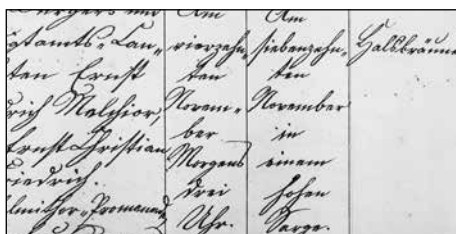 Bürgers und Am Am
ptamts-Can- vierzehn- siebenzehn- Halsbräune
ten Ernst ten ten
drich Melchior, Novem- November
Ernst Christian ber in
Friedrich. Morgens einem
lmithor-Promenad drei hohen
Uhr. Sarge.